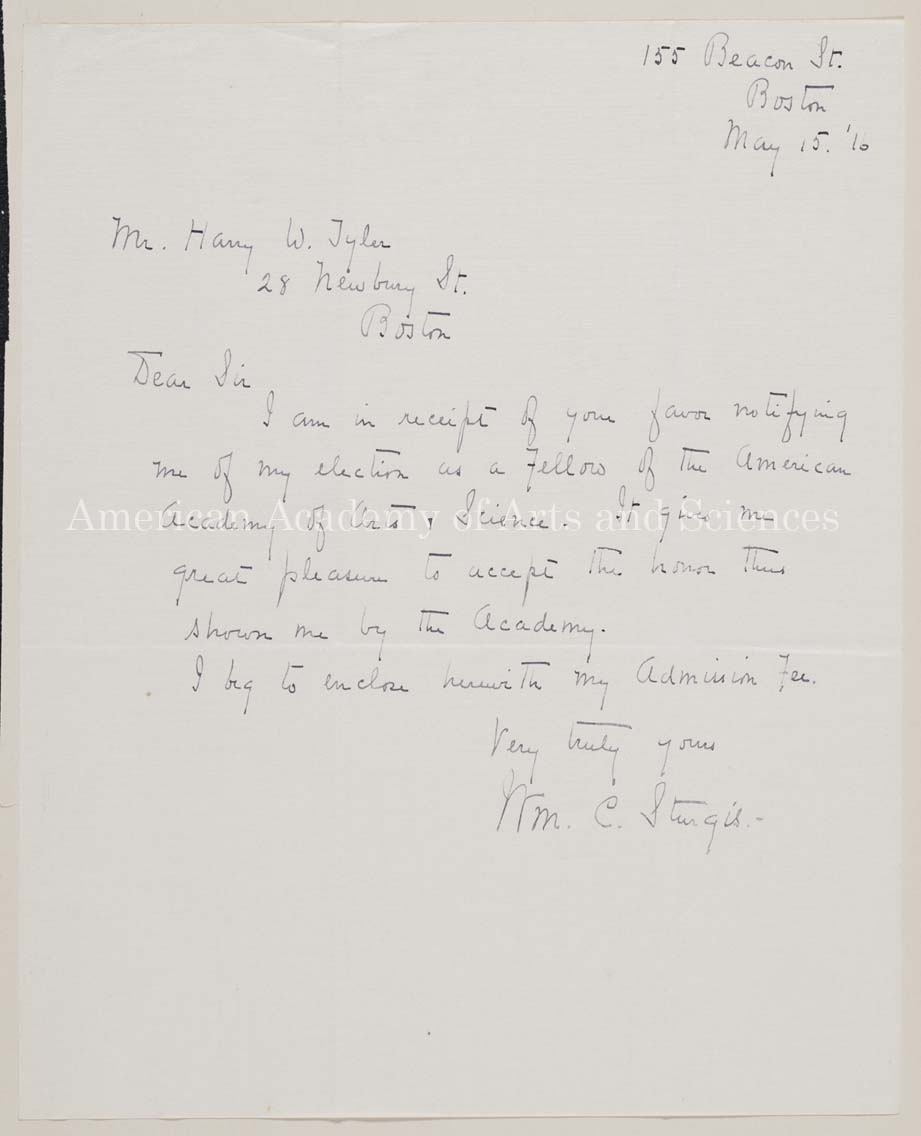 155 Beacon St.
Boston
May 15. '16
Mr. Harry W. Tyler
28 Newbury St.
Boston
Dear Sir
I am in receipt of your favor notifying
me of my election as a Fellow of the American
Academy of Arts & Science. It gives me
American Academy of Arts and Sciences
great pleasure to accept the honor thus
shown me by the Academy.
I beg to enclose herewith my Admission Fee.
Very truly yours
Wm. C. Sturgis.-